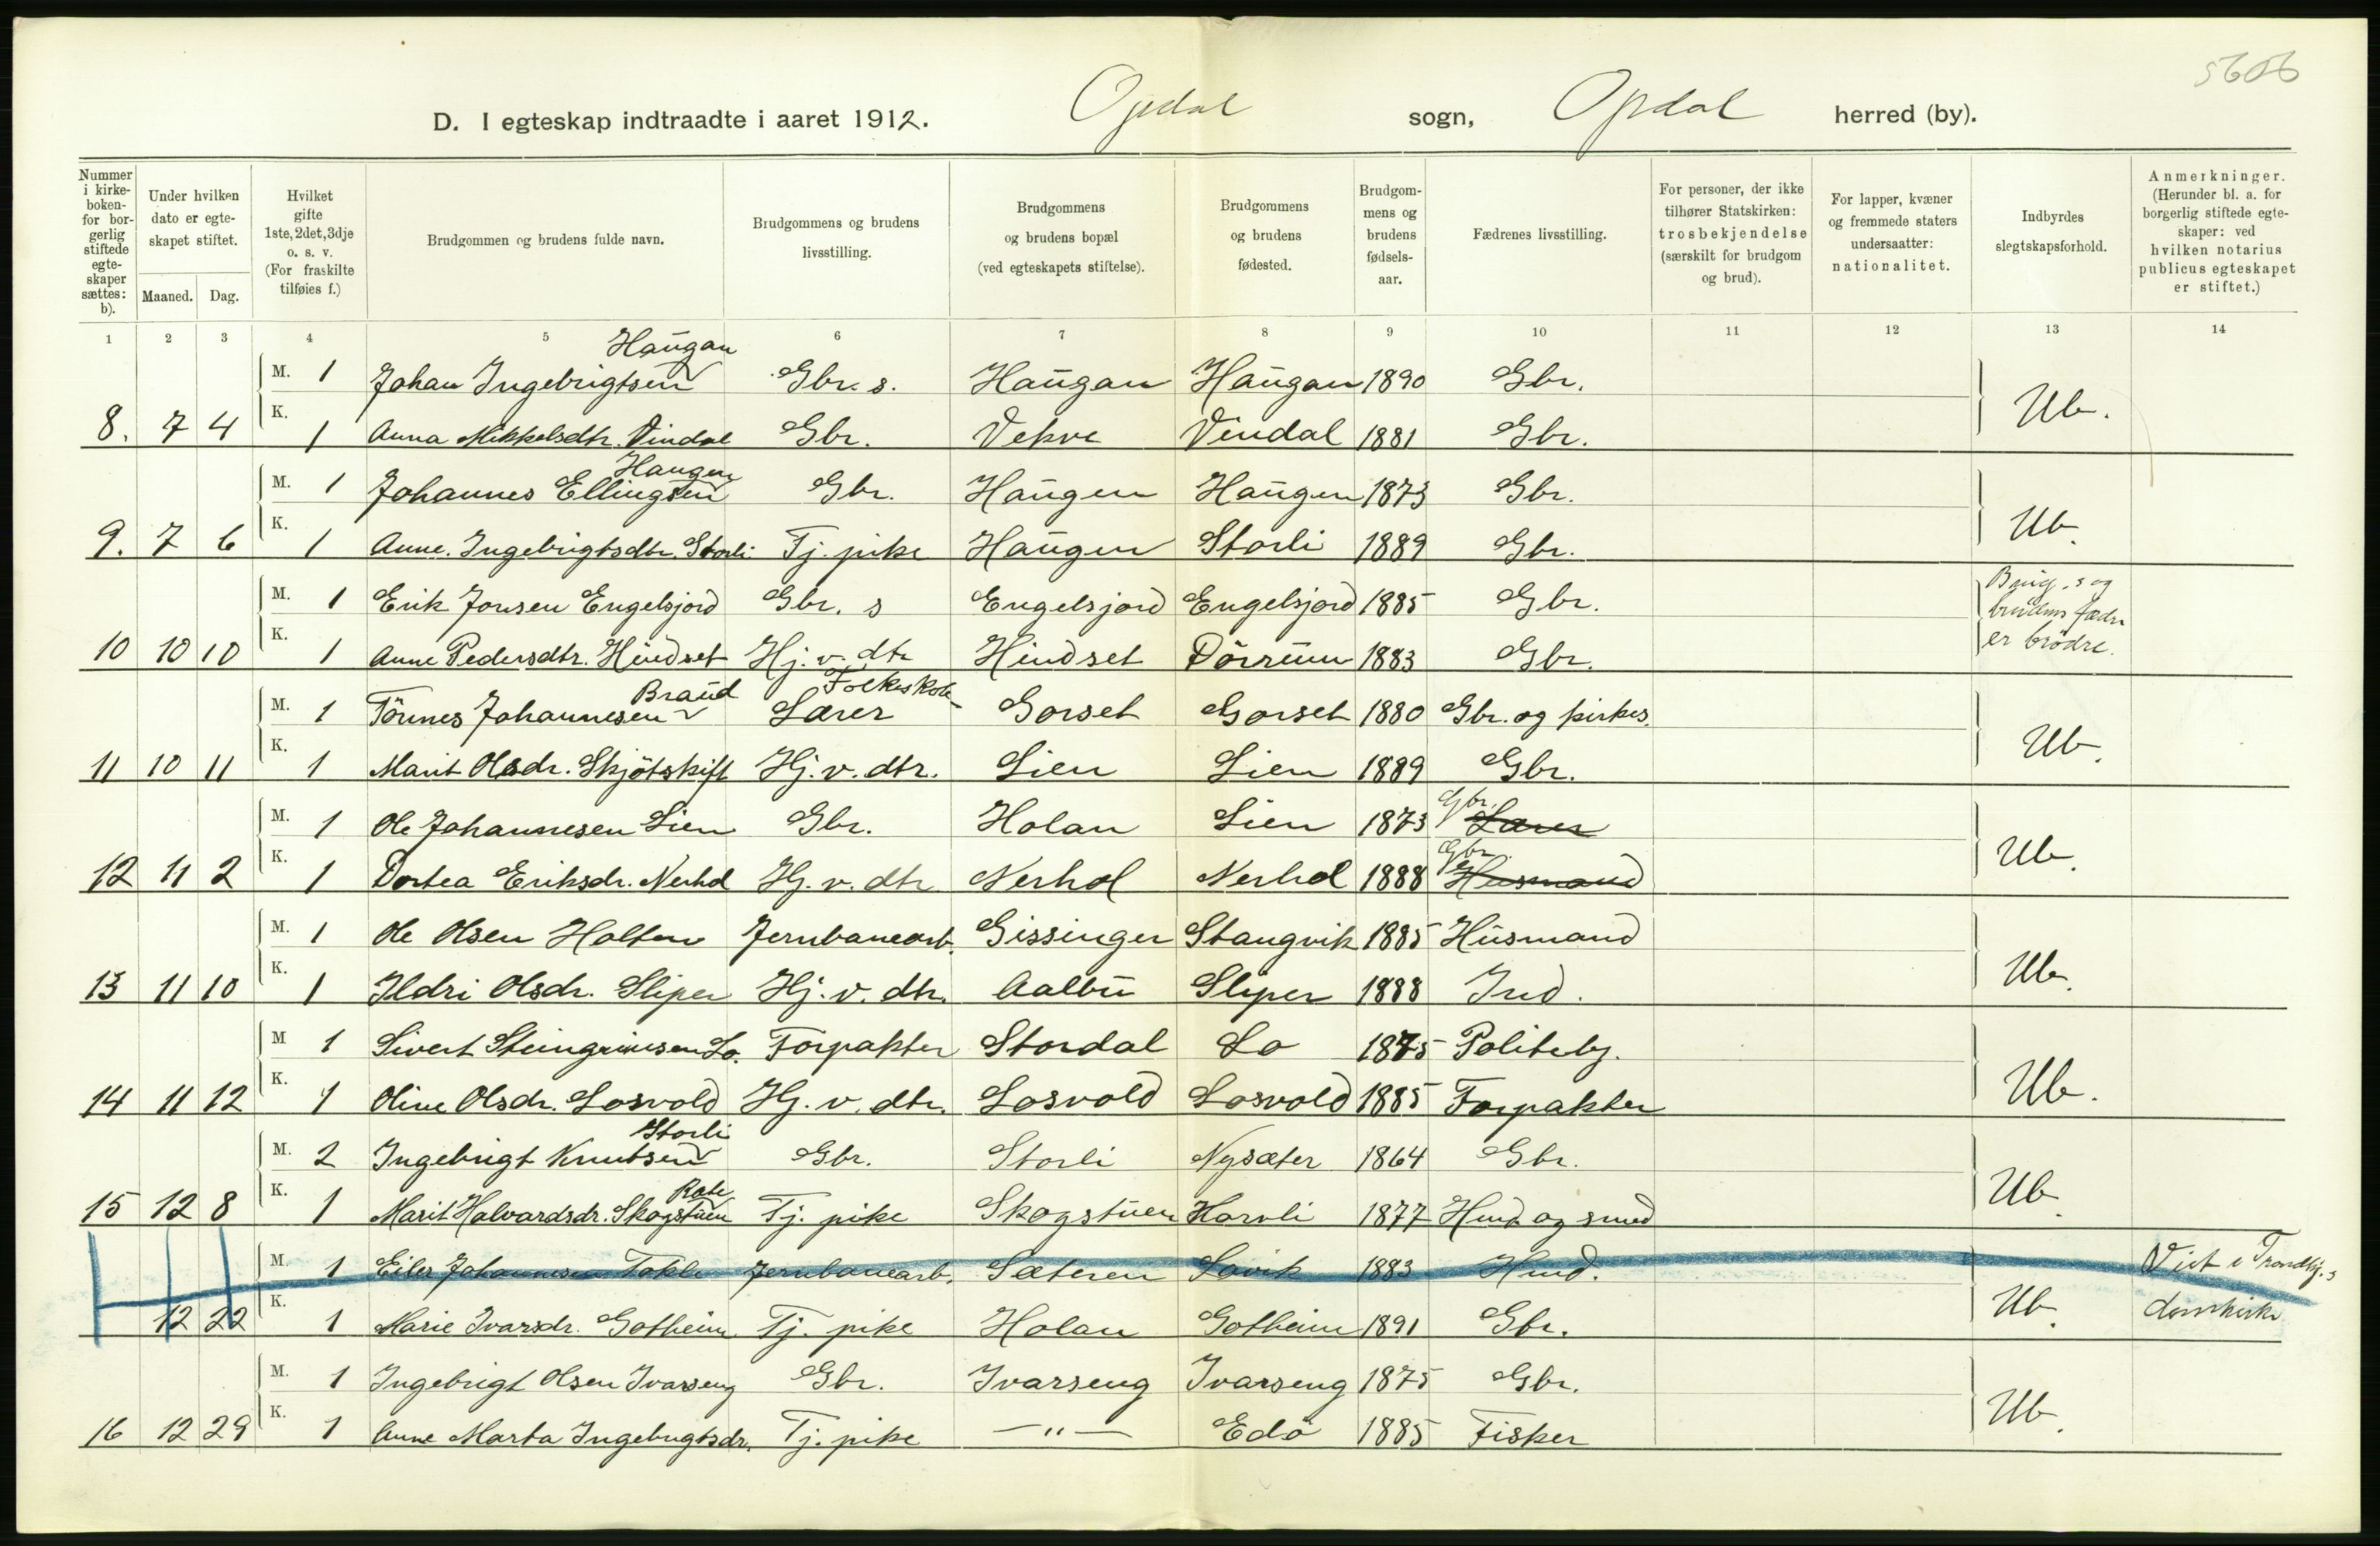 5606
D. I egteskap indtraadte i aaret 1912. Opdal sogn, Opdal herred (by).
Nummer i kirkeboken - for borgerlig stiftede egteskaper sættes: b).
Under hvilken dato er egteskapet stiftet.
Maaned. Dag.
Hvilket gifte 1ste, 2det, 3dje o. s. v. (For fraskilte tilføies f.)
Brudgommen og brudens fulde navn.
Brudgommens og brudens livsstilling.
Brudgommens og brudens bopæl (ved egteskapets stiftelse).
Brudgommens og brudens fødested.
Brudgommens og brudens fødselsaar.
Fædrenes livsstilling.
For personer, der ikke tilhører Statskirken: trosbekjendelse (særskilt for brudgom og brud).
For lapper, kvæner og fremmede staters undersaatter: nationalitet.
Indbyrdes slegtskapsforhold.
Anmerkninger. (Herunder bl. a. for borgerlig stiftede egteskaper: ved hvilken notarius publicus egteskapet er stiftet.)
1 2 3 4 5 6 7 8 9 10 11 12 13 14
Haugan
M. 1 Johan Ingebrigtsen Gbr. s. Haugan Haugan 1890 Gbr.
8. 7 4 K. 1 Anna Mikkelsdtr. Vindal Gbr. Vekve Vindal 1881 Gbr. Ub.
Haugen
M. 1 Johannes Ellingsen Gbr. Haugen Haugen 1873 Gbr.
9. 7 6 K. 1 Anne Ingebrigtsdtr. Storli Tj. pike Haugen Storli 1889 Gbr. Ub.
M. 1 Erik Jonsen Engelsjord Gbr. s Engelsjord Engelsjord 1885 Gbr. Brug. s og brudens fædre
10 10 10 K. 1 Anne Pedersdtr. Hindset Hj. v. dtr Hindset Dörrum 1883 Gbr. er brödre.
Braud Folkeskole
M. 1 Tönnes Johannesen Lærer Gorset Gorset 1880 Gbr. og kirkes.
11 10 11 K. 1 Marit Olsdr. Skjötskift Hj. v. dtr. Lien Lien 1889 Gbr. Ub.
Gbr.
M. 1 Ole Johannesen Lien Gbr. Holan Lien 1873 Lærer
Gbr.
12 11 2 K. 1 Dortea Eriksdr. Nerhol Hj. v. dtr Nerhol Nerhol 1888 Husmand Ub.
M. 1 Ole Olsen Holten Jernbanearb. Gissinger Stangvik 1885 Husmand
13 11 10 K. 1 Ildri Olsdr. Sliper Hj. v. dtr. Aalbu Sliper 1888 Ind. Ub.
M 1 Sivert Steingrimsen Lo. Forpakter Stordal Lo 1875 Politebj.
14 11 12 K. 1 Oline Olsdr. Losvold Hj. v. dtr. Losvold Losvold 1885 Forpakter Ub.
Storli
M. 2 Ingebrigt Knutsen Gbr. Storli Nysæter 1864 Gbr.
15 12 8 K. 1 Marit Halvardsdr. Skogstuen Tj. pike Skogstuen Horvli 1877 Husm. og smed Ub.
M. 1 Eiler Johannesen Takle Jernbanearb. Sæteren Lavik 1883 Husd. Viet i Trondhj.s
12 22 K. 1 Marie Ivarsdr. Gotheim Tj. pike Holan Gotheim 1891 Gbr. Ub. domkirke
M. 1 Ingebrigt Olsen Ivarseng Gbr. Ivarseng Ivarseng 1875 Gbr.
16 12 29 K. 1 Anne Marta Ingebrigtsdr. Tj. pike —"— Edö 1885 Fisker Ub.